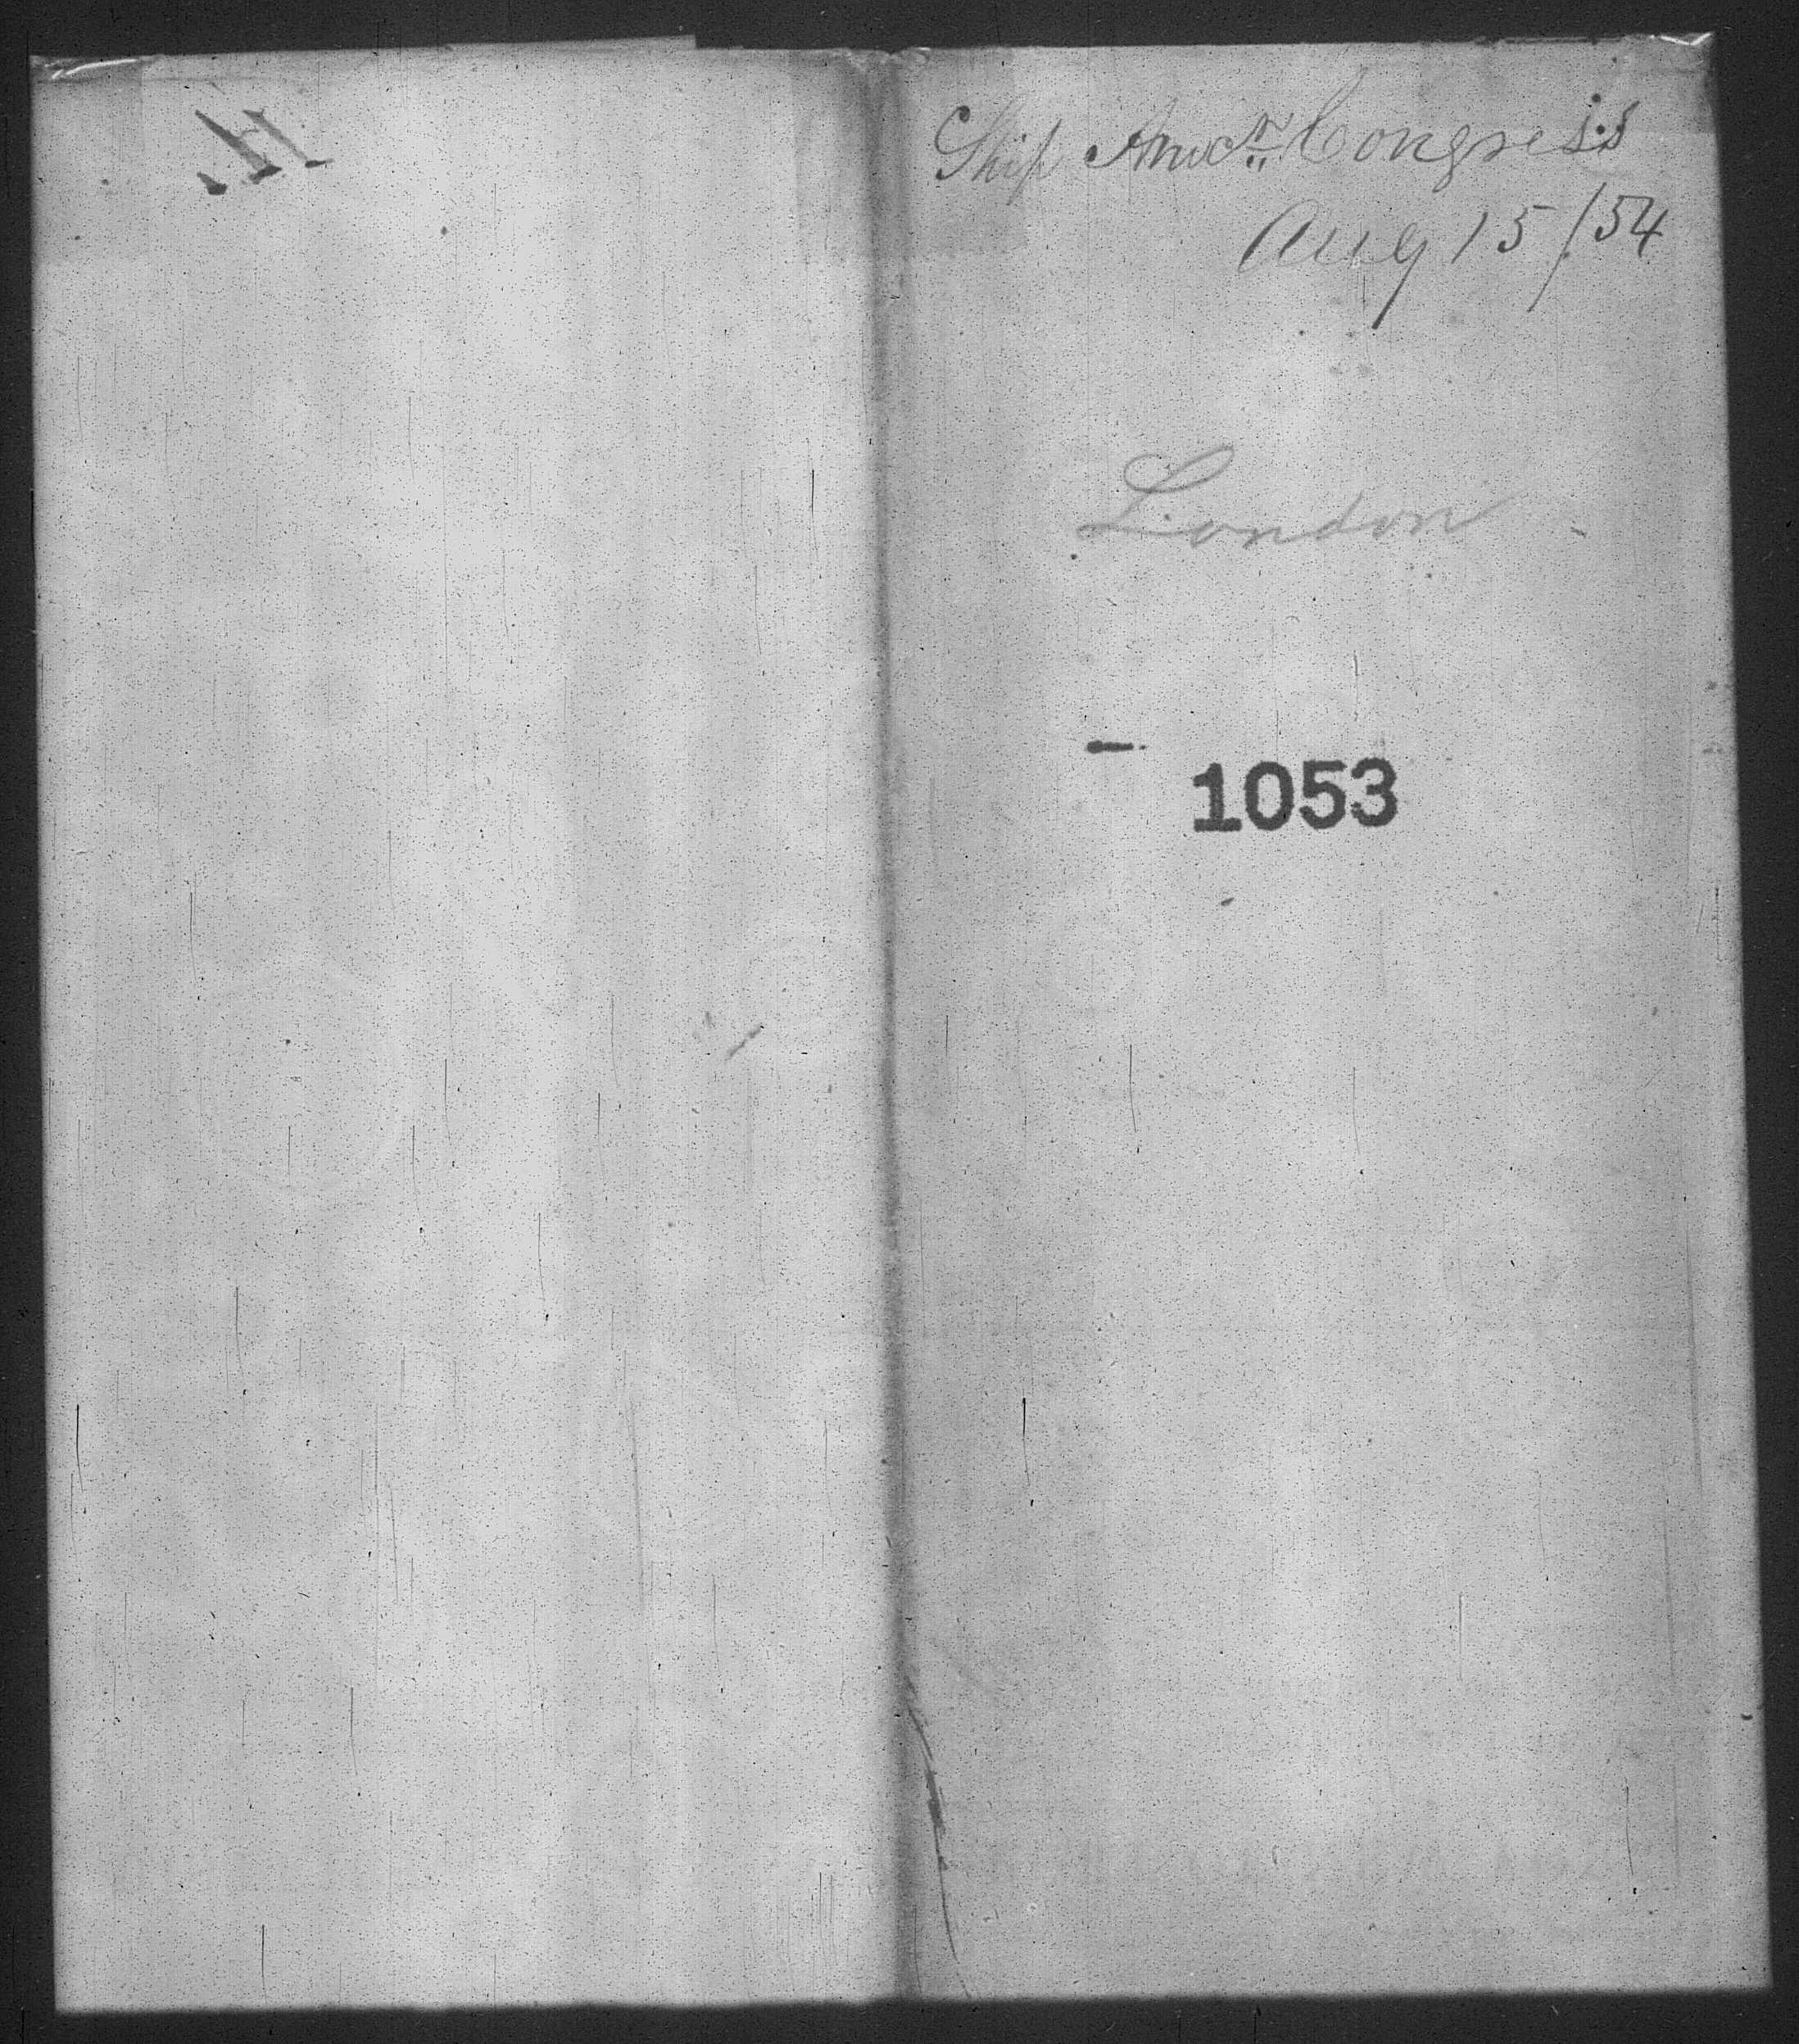 H
Ship Amcn Congress
Aug 15/54
London
1053